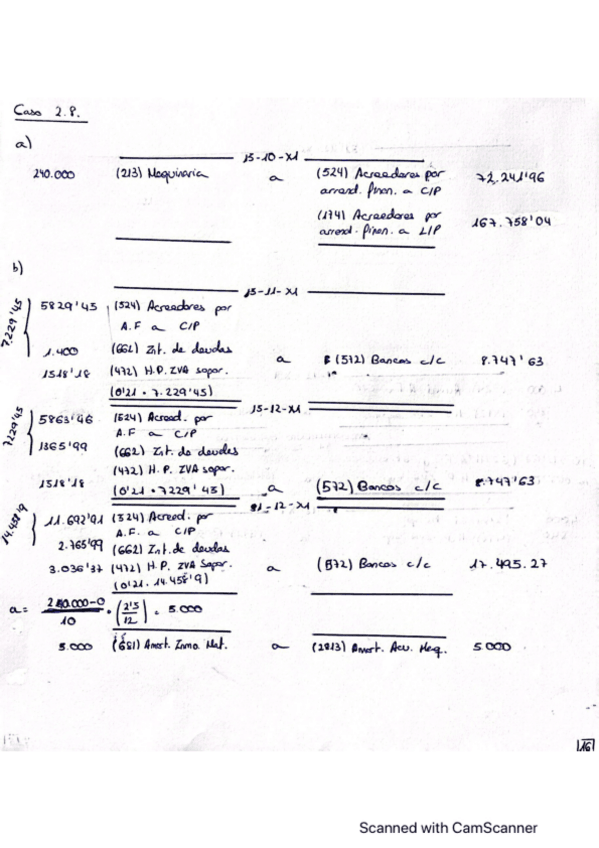 Caso 2.8.
a)
15-10-X1
240.000 (213) Maquinaria a (524) Acreedores por 72.241'96
arrend. finan. a C/P
(174) Acreedores por 167.758'04
arrend. finan. a L/P
b)
15-11-X1
7.229'45
5829'45 (524) Acreedores por
A.F a C/P
1.400 (662) Int. de deudas a (572) Bancos c/c 8.747'63
1518'18 (472) H.P. IVA sopor.
(0'21 · 7.229'45)
15-12-X1
7229'45
5863'46 (524) Acreed. por
A.F a C/P
1365'99 (662) Int. de deudas
(472) H.P. IVA sopor.
1518'18 (0'21 · 7229'45) a (572) Bancos c/c 8.747'63
31-12-X1
14.458'9
11.692'91 (524) Acreed. por
A.F. a C/P
2.765'99 (662) Int. de deudas
3.036'37 (472) H.P. IVA Sopor. a (572) Bancos c/c 17.495.27
(0'21 · 14.458'9)
a = 240.000-0 / 10 · (2'5 / 12) = 5.000
5.000 (681) Amort. Inmo. Mat. a (2813) Amort. Acu. Maq. 5000
16
Scanned with CamScanner